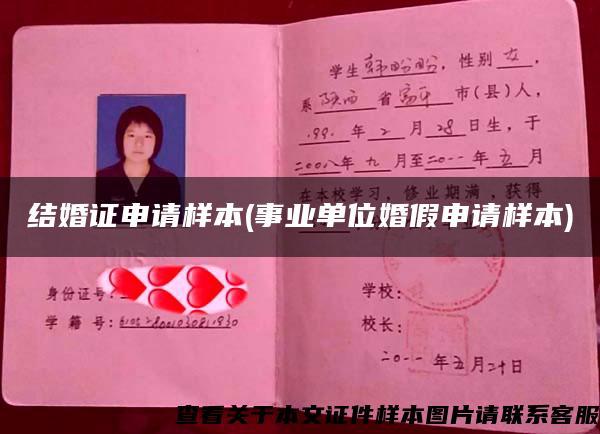 学生韩盼盼，性别女，
系陕西省富平市(县)人，
199.年2月28日生，于
二〇〇八年九月至二〇一一年五月
在本校学习，修业期满，获得
结婚证申请样本(事业单位婚假申请样本)
身份证号：
学籍号：
学校：
校长：
二〇一一年五月二十日
查看关于本文证件样本图片请联系客服